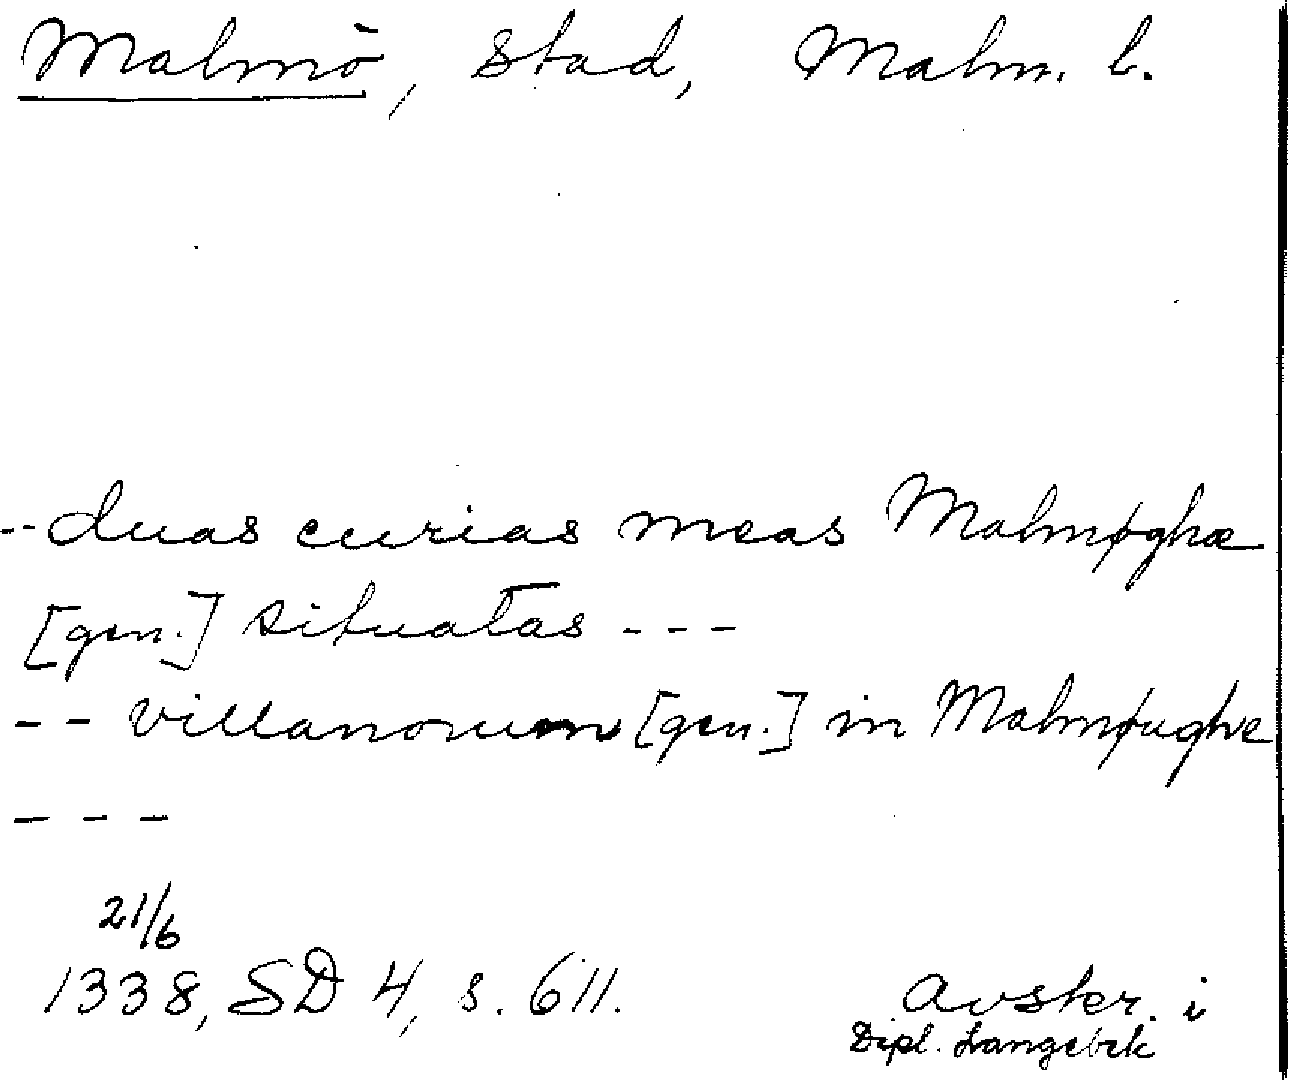 Malmö, stad, Malm. l.
-- duas curias meas Malmøghæ
[gen.] situatas ---
-- villanorum [gen.] in Malmøughe
---
21/6
1338, SD 4, s. 611.
Avskr. i
Dipl. Langebek